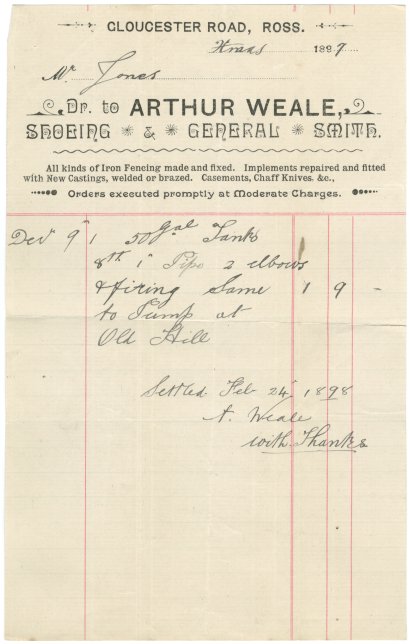 GLOUCESTER ROAD, ROSS.
Xmas 1897.
Mr Jones
Dr. to ARTHUR WEALE,
SHOEING & GENERAL SMITH.
All kinds of Iron Fencing made and fixed. Implements repaired and fitted
with New Castings, welded or brazed. Casements, Chaff Knives, &c.,
Orders executed promptly at Moderate Charges.
Dec 9th 1 50 gal Tank
8ft 1" Pipe 2 elbows
& fixing Same 1 9 -
to Pump at
Old Hill
Settled Feb 24 1898
A. Weale
with Thanks